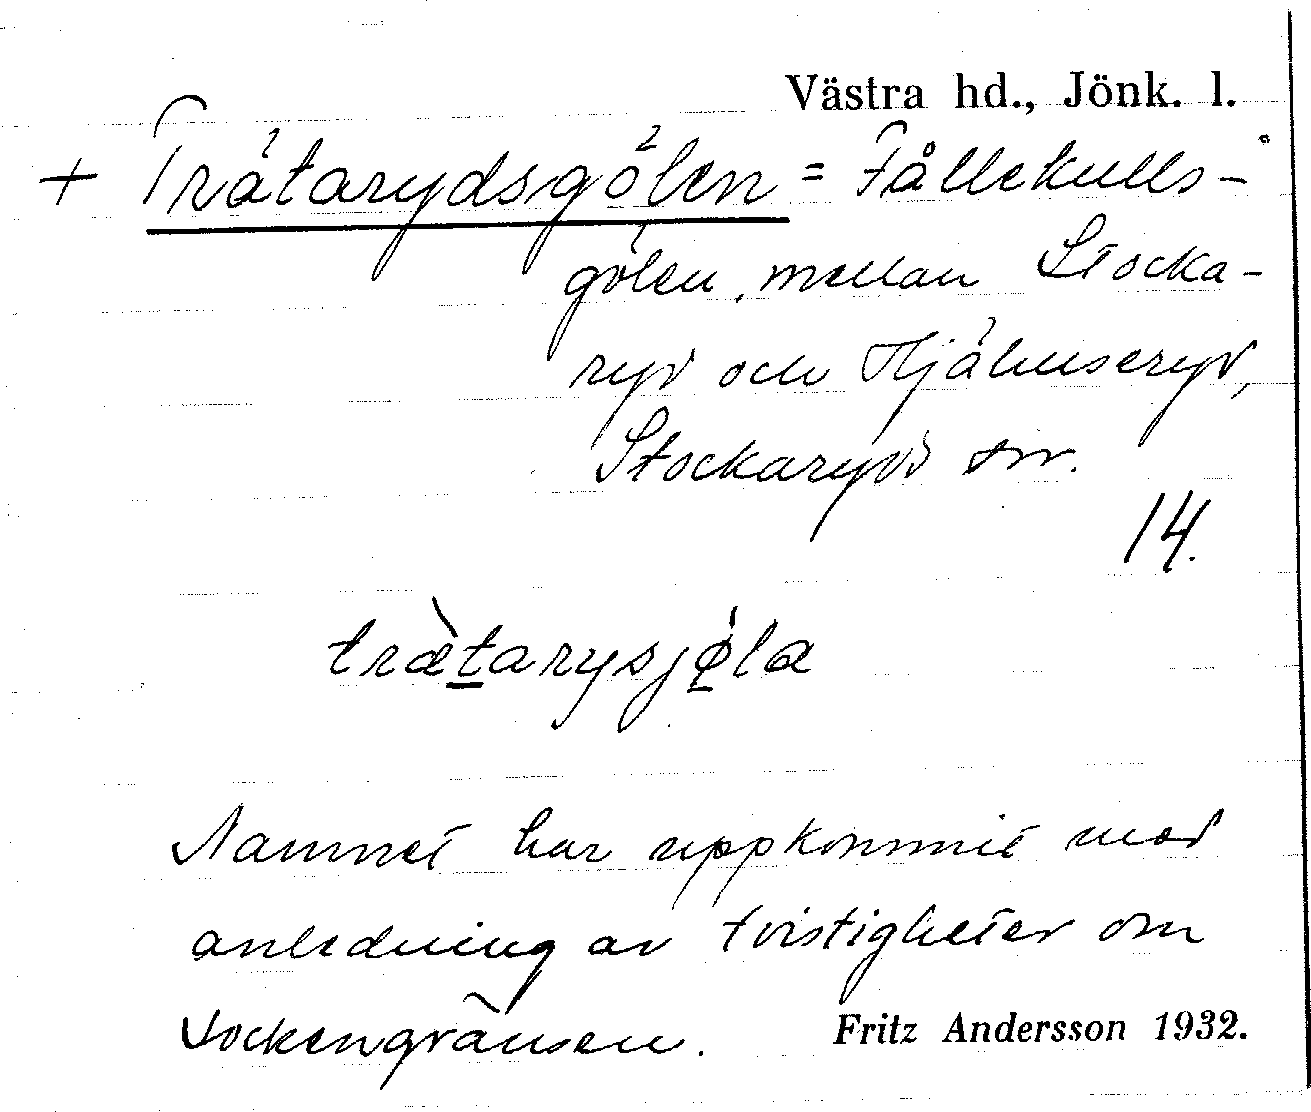 Västra hd., Jönk. l.
+ Trätarydsgölen = Fållekulls-
gölen, mellan Stocka-
ryd och Hjälmseryd,
Stockaryds sn.
14.
trætarysjøla
Namnet har uppkommit med
anledning av tvistigheter om
sockengränsen.
Fritz Andersson 1932.